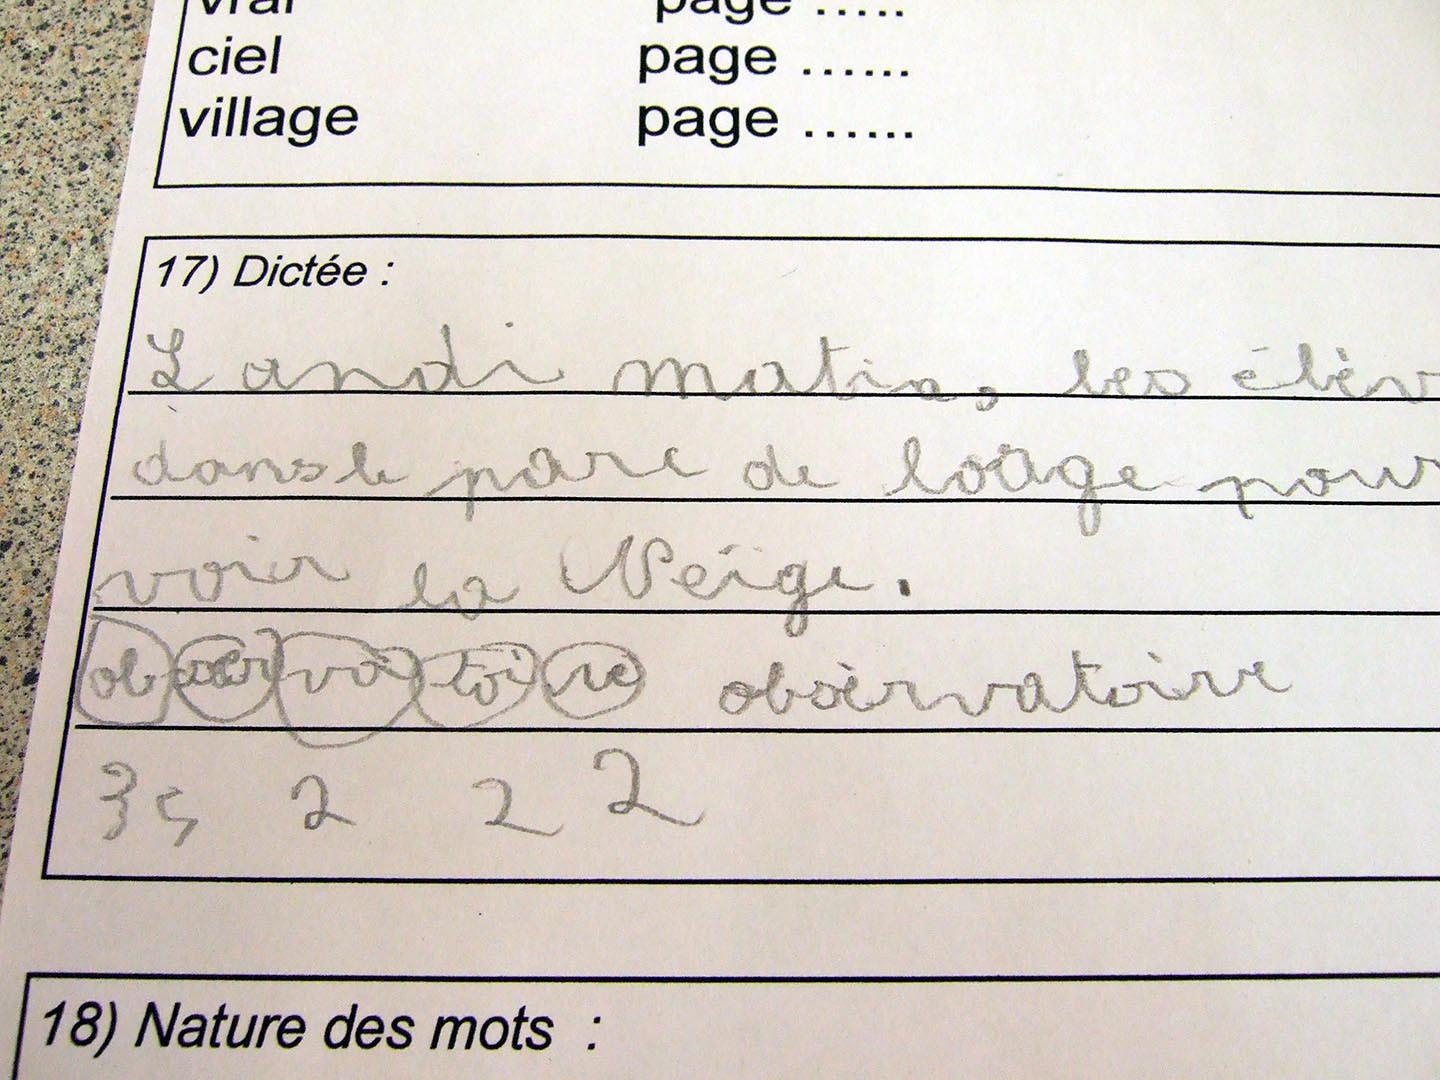 vrai page .....
ciel page ......
village page ......
17) Dictée :
Landi matin, les élèv
dans le parc de loâge pour
voir la Neige.
ob ser va toi re observatoire
35 2 2 2
18) Nature des mots :